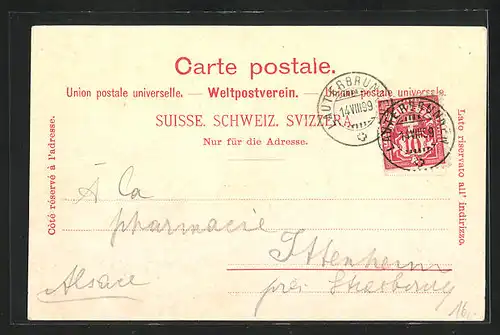 Carte postale.
Union postale universelle. — Weltpostverein. — Unione postale universale.
SUISSE. SCHWEIZ. SVIZZERA.
Nur für die Adresse.
Côté réservé à l'adresse.
Lato riservato all' indirizzo.
LAUTERBRUNNEN
14 VIII 99
LAUTERBRUNNEN
14 VIII 99
10
À la
pharmacie
Ittenheim
près Strasbourg
Alsace
16.-